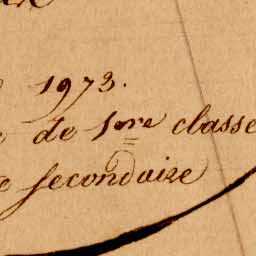 1973.
de 1ere classe
secondaire